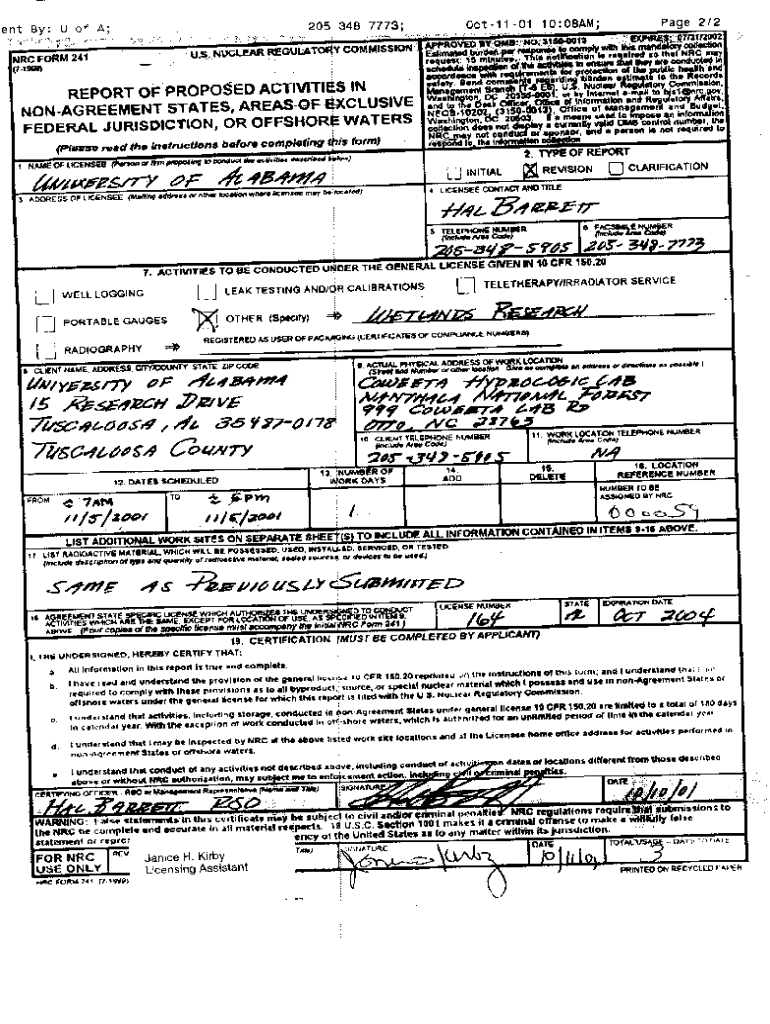 ent By: U of A; 205 348 7773; Oct-11-01 10:08AM; Page 2/2
NRC FORM 241
(7-1999)
U.S. NUCLEAR REGULATORY COMMISSION
REPORT OF PROPOSED ACTIVITIES IN
NON-AGREEMENT STATES, AREAS OF EXCLUSIVE
FEDERAL JURISDICTION, OR OFFSHORE WATERS
(Please read the instructions before completing this form)
APPROVED BY OMB: NO. 3150-0013 EXPIRES:
Estimated burden per response to comply with this mandatory collection
request: 15 minutes. This notification is required so that NRC may
schedule inspection of the activities to ensure that they are conducted in
accordance with requirements for protection of the public health and
safety. Send comments regarding burden estimate to the Records
Management Branch (T-6 E6), U.S. Nuclear Regulatory Commission,
Washington, DC 20555-0001, or by Internet e-mail to bjs1@nrc.gov,
and to the Desk Officer, Office of Information and Regulatory Affairs,
NEOB-10202, (3150-0013), Office of Management and Budget,
Washington, DC 20503. If a means used to impose an information
collection does not display a currently valid OMB control number, the
NRC may not conduct or sponsor, and a person is not required to
respond to, the information collection
1 NAME OF LICENSEE (Person or firm proposing to conduct the activities described below)
UNIVERSITY OF ALABAMA
2. TYPE OF REPORT
INITIAL X REVISION CLARIFICATION
3 ADDRESS OF LICENSEE (Mailing address or other location where licensee may be located)
4 LICENSEE CONTACT AND TITLE
HAL BARRETT
5 TELEPHONE NUMBER
(Include Area Code)
205-348-5905
6 FACSIMILE NUMBER
(Include Area Code)
205-348-7773
7. ACTIVITIES TO BE CONDUCTED UNDER THE GENERAL LICENSE GIVEN IN 10 CFR 150.20
WELL LOGGING LEAK TESTING AND/OR CALIBRATIONS TELETHERAPY/IRRADIATOR SERVICE
PORTABLE GAUGES X OTHER (Specify) WETLANDS RESEARCH
RADIOGRAPHY REGISTERED AS USER OF PACKAGING (CERTIFICATES OF COMPLIANCE NUMBERS)
8 CLIENT NAME, ADDRESS, CITY/COUNTY STATE ZIP CODE
UNIVERSITY OF ALABAMA
15 RESEARCH DRIVE
TUSCALOOSA, AL 35487-0178
TUSCALOOSA COUNTY
9. ACTUAL PHYSICAL ADDRESS OF WORK LOCATION
(Street and Number or other location. Give as complete an address or directions as possible)
COWEETA HYDROLOGIC LAB
NANTHALA NATIONAL FOREST
999 COWEETA LAB RD
OTTO, NC 28763
10 CLIENT TELEPHONE NUMBER
(Include Area Code)
205-348-5905
11. WORK LOCATION TELEPHONE NUMBER
(Include Area Code)
NA
12. DATES SCHEDULED
FROM 7AM
11/5/2001
TO PM
11/5/2001
13. NUMBER OF
WORK DAYS
1
14.
ADD
15.
DELETE
16. LOCATION
REFERENCE NUMBER
NUMBER TO BE
ASSIGNED BY NRC
000059
LIST ADDITIONAL WORK SITES ON SEPARATE SHEET(S) TO INCLUDE ALL INFORMATION CONTAINED IN ITEMS 8-16 ABOVE.
17 LIST RADIOACTIVE MATERIAL, WHICH WILL BE POSSESSED, USED, INSTALLED, SERVICED, OR TESTED
(Include description of type and quantity of radioactive material, sealed sources, or devices to be used.)
SAME AS PREVIOUSLY SUBMITTED
18 AGREEMENT STATE SPECIFIC LICENSE WHICH AUTHORIZES THE UNDERSIGNED TO CONDUCT
ACTIVITIES WHICH ARE THE SAME, EXCEPT FOR LOCATION OF USE, AS SPECIFIED IN ITEM
ABOVE (Four copies of the specific license must accompany the initial NRC Form 241)
LICENSE NUMBER
164
STATE
EXPIRATION DATE
OCT 2004
19. CERTIFICATION (MUST BE COMPLETED BY APPLICANT)
I, THE UNDERSIGNED, HEREBY CERTIFY THAT:
a All information in this report is true and complete.
b. I have read and understand the provision of the general license 10 CFR 150.20 reprinted on the instructions of this form; and I understand that I am
required to comply with these provisions as to all byproduct, source, or special nuclear material which I possess and use in non-Agreement States or
offshore waters under the general license for which this report is filed with the U.S. Nuclear Regulatory Commission.
c. I understand that activities, including storage, conducted in non-Agreement States under general license 10 CFR 150.20 are limited to a total of 180 days
in calendar year. With the exception of work conducted in off-shore waters, which is authorized for an unlimited period of time in the calendar year
d. I understand that I may be inspected by NRC at the above listed work site locations and at the Licensee home office address for activities performed in
non-Agreement States or offshore waters.
e I understand that conduct of any activities not described above, including conduct of activities on dates or locations different from those described
above or without NRC authorization, may subject me to enforcement action, including civil or criminal penalties.
CERTIFYING OFFICER - RSO or Management Representative (Name and Title)
HAL BARRETT RSO
SIGNATURE
DATE
10/10/01
WARNING: False statements in this certificate may be subject to civil and/or criminal penalties. NRC regulations require that submissions to
the NRC be complete and accurate in all material respects. 18 U.S.C. Section 1001 makes it a criminal offense to make a willfully false
statement or repre ency of the United States as to any matter within its jurisdiction.
FOR NRC
USE ONLY
REV
Janice H. Kirby
Licensing Assistant
Title)
SIGNATURE
Janice Kirby
DATE
10/11/01
TOTAL USAGE - DAYS TO DATE
3
NRC FORM 241 (7-1999)
PRINTED ON RECYCLED PAPER